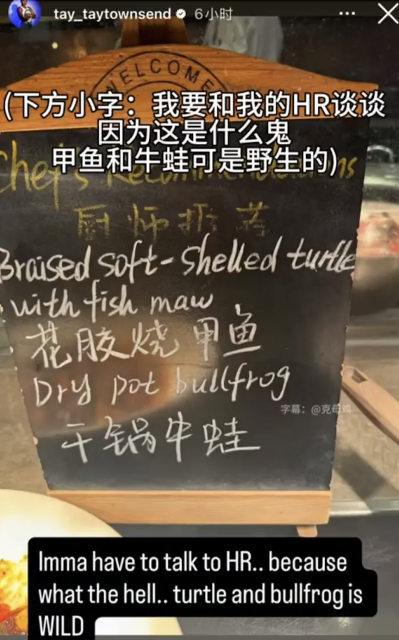 tay_taytownsend 6小时
WELCOME
(下方小字：我要和我的HR谈谈
因为这是什么鬼
甲鱼和牛蛙可是野生的)
Chef's Recommendations
厨师推荐
Braised soft-shelled turtle
with fish maw
花胶烧甲鱼
Dry pot bullfrog
字幕：@克莓鸡
干锅牛蛙
Imma have to talk to HR.. because
what the hell.. turtle and bullfrog is
WILD